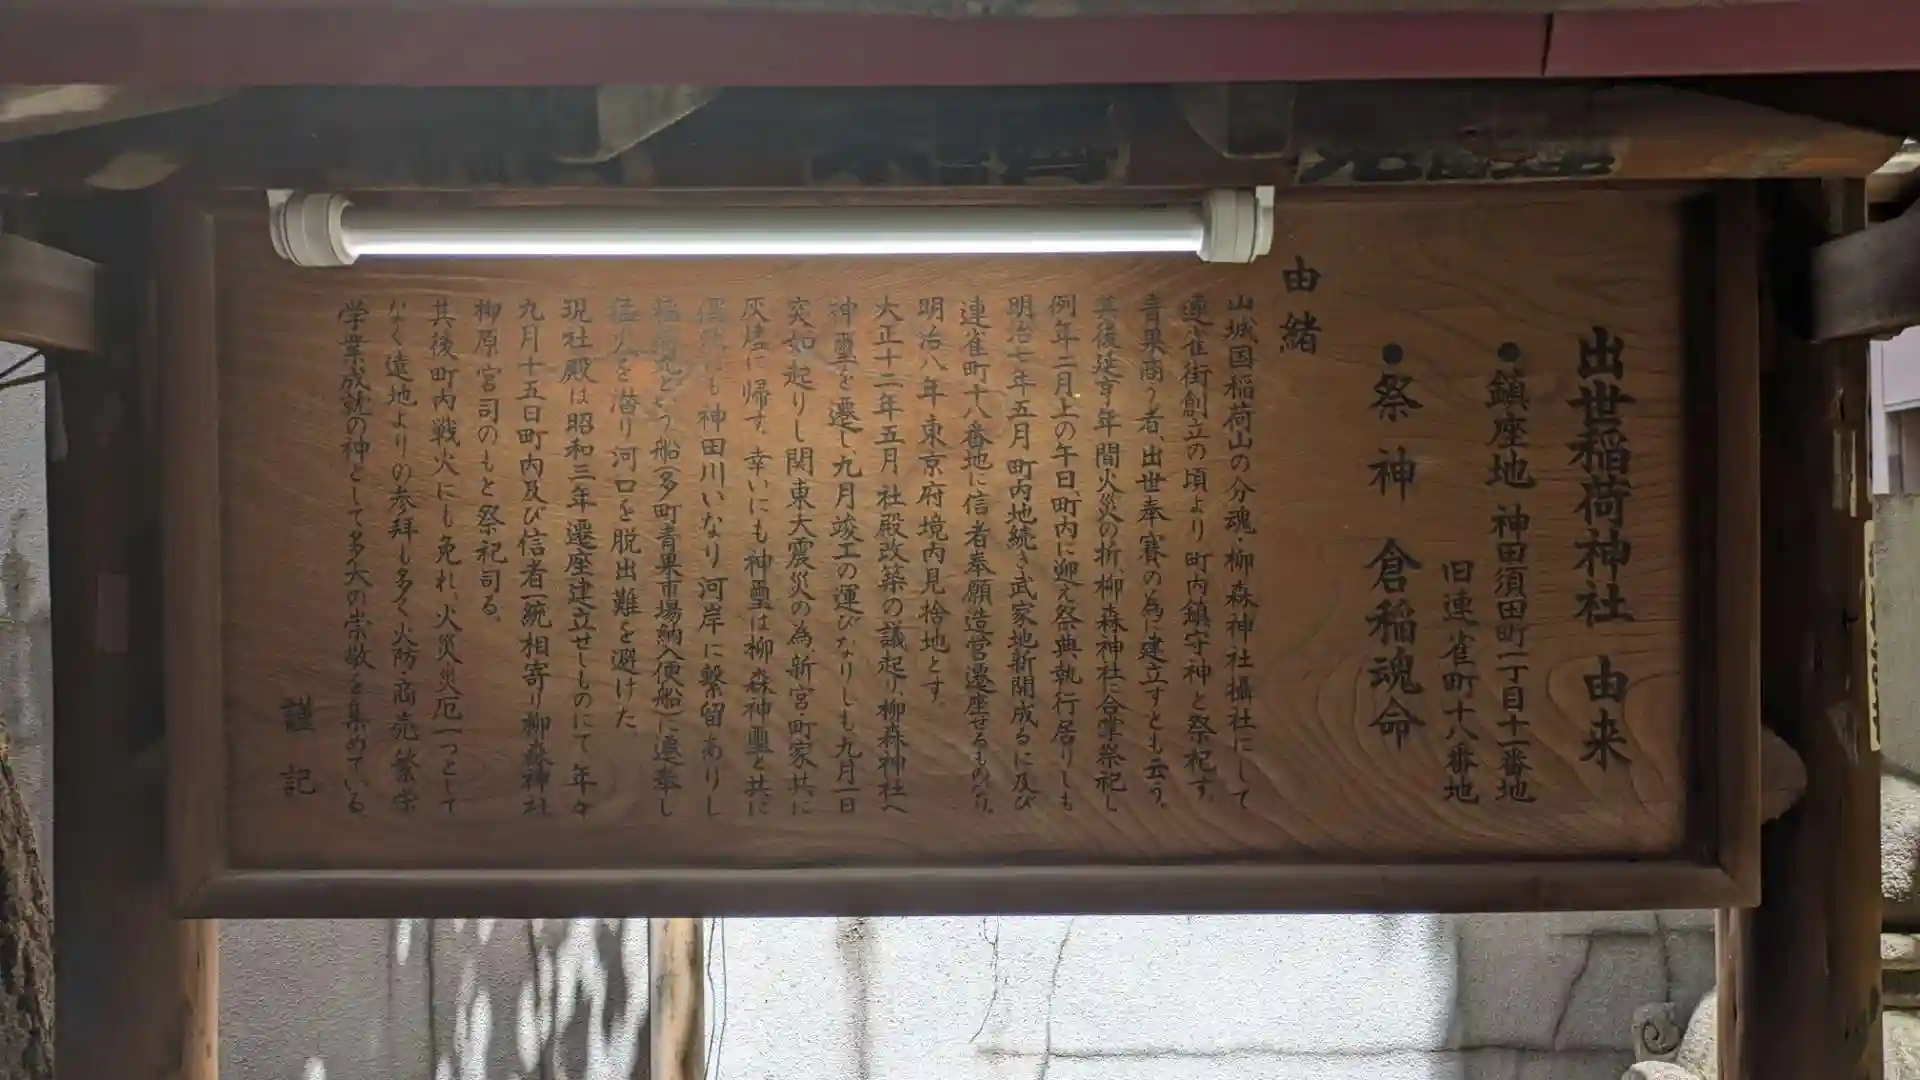 出世稲荷神社 由来
●鎮座地 神田須田町二丁目十一番地
旧連雀町十八番地
●祭神 倉稲魂命
由緒
山城国稲荷山の分魂・柳森神社攝社にして
連雀街創立の頃より町内鎮守神と祭祀す。
青果商う者、出世奉賽の為に建立すとも云う。
其後延享年間火災の折、柳森神社に合挙祭祀し
例年二月上の午日、町内に迎え祭典執行居りしも
明治七年五月町内地続き武家地新開成るに及び
連雀町十八番地に信者奉願造営遷座せるものなり。
明治八年東京府境内見捨地とす。
大正十二年五月社殿改築の議起り、柳森神社へ
神璽を遷し、九月竣工の運びなりしも九月一日
突如起りし関東大震災の為、新宮・町家共に
灰燼に帰す。幸いにも神璽は柳森神璽と共に
も神田川いなり河岸に繋留ありし
船(多町青果市場納入便船)に遷奉し
猛火を潜り河口を脱出難を避けた。
現社殿は昭和三年遷座建立せしものにて年々
九月十五日町内及び信者一統相寄り柳森神社
柳原宮司のもと祭祀司る。
其後町内戦火にも免れ、火災災厄一つとして
なく遠地よりの参拝も多く火防・商売繁栄
学業成就の神として多大の崇敬を集めている。
謹記